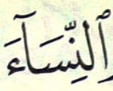 ٱلنِّسَآءَ